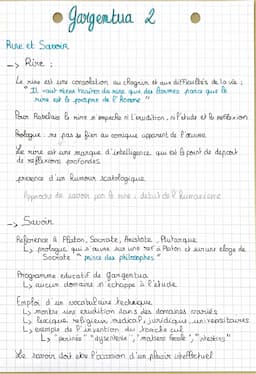 Gargantua 2
Rire et Savoir
-> Rire :
Le rire est une consolation au chagrin et aux difficultés de la vie :
" Il vaut mieux traiter du rire que des larmes parce que le
rire est le propre de l'Homme "
Pour Rabelais le rire n'empêche ni l'érudition, ni l'étude et la réflexion
Prologue : ne pas se fier au comique apparent de l'œuvre
Le rire est une marque d'intelligence qui est le point de départ
de réflexions profondes
présence d'un humour scatologique
Approche du savoir par le rire : début de l'humanisme
-> Savoir
Référence à Platon, Socrate, Aristote, Plutarque
↳ prologue qui s'ouvre sur une ref à Platon et sur un éloge de
Socrate " prince des philosophes "
Programme éducatif de Gargantua
↳ aucun domaine n'échappe à l'étude
Emploi d'un vocabulaire technique
↳ montre une érudition dans des domaines variés
↳ lexique religieux, médical, juridique, universitaires
↳ exemple de l'invention du torche cul
↳ "périnée" "dysenterie", "matière fécale",
Le savoir doit être l'occasion d'un plaisir intellectuel